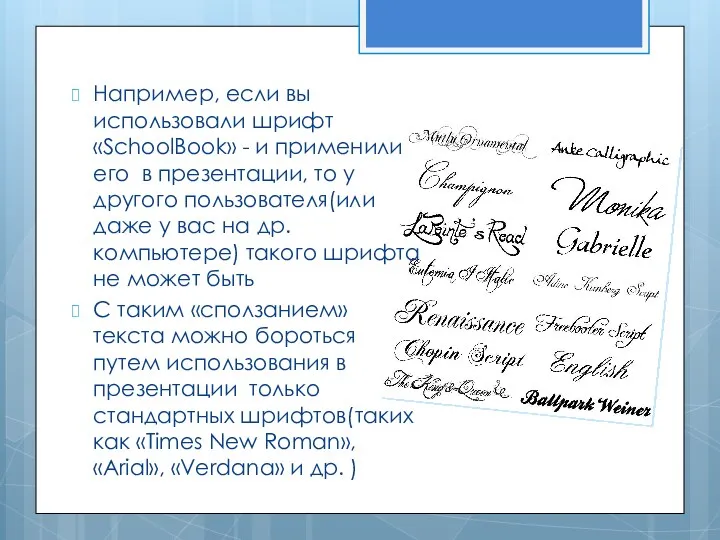 Например, если вы
использовали шрифт
«SchoolBook» - и применили
его в презентации, то у
другого пользователя(или
даже у вас на др.
компьютере) такого шрифта
не может быть
С таким «сползанием»
текста можно бороться
путем использования в
презентации только
стандартных шрифтов(таких
как «Times New Roman»,
«Arial», «Verdana» и др. )
Mutlu Ornamental
Anke Calligraphic
Champignon
Monika
LaPointe's Road
Gabrielle
Eutemia I Italic
Adine Kirnberg Script
Renaissance
Freebooter Script
Chopin Script
English
The King & Queen
Ballpark Weiner